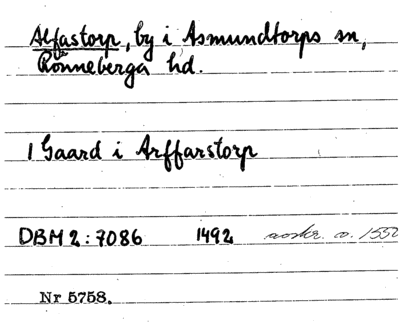 Alfastorp, by i Asmundtorps sn,
Rönneberga hd.
1 Gaard i Arffarstorp
DBM 2:7086 1492 avskr. o. 1550
Nr 5758.